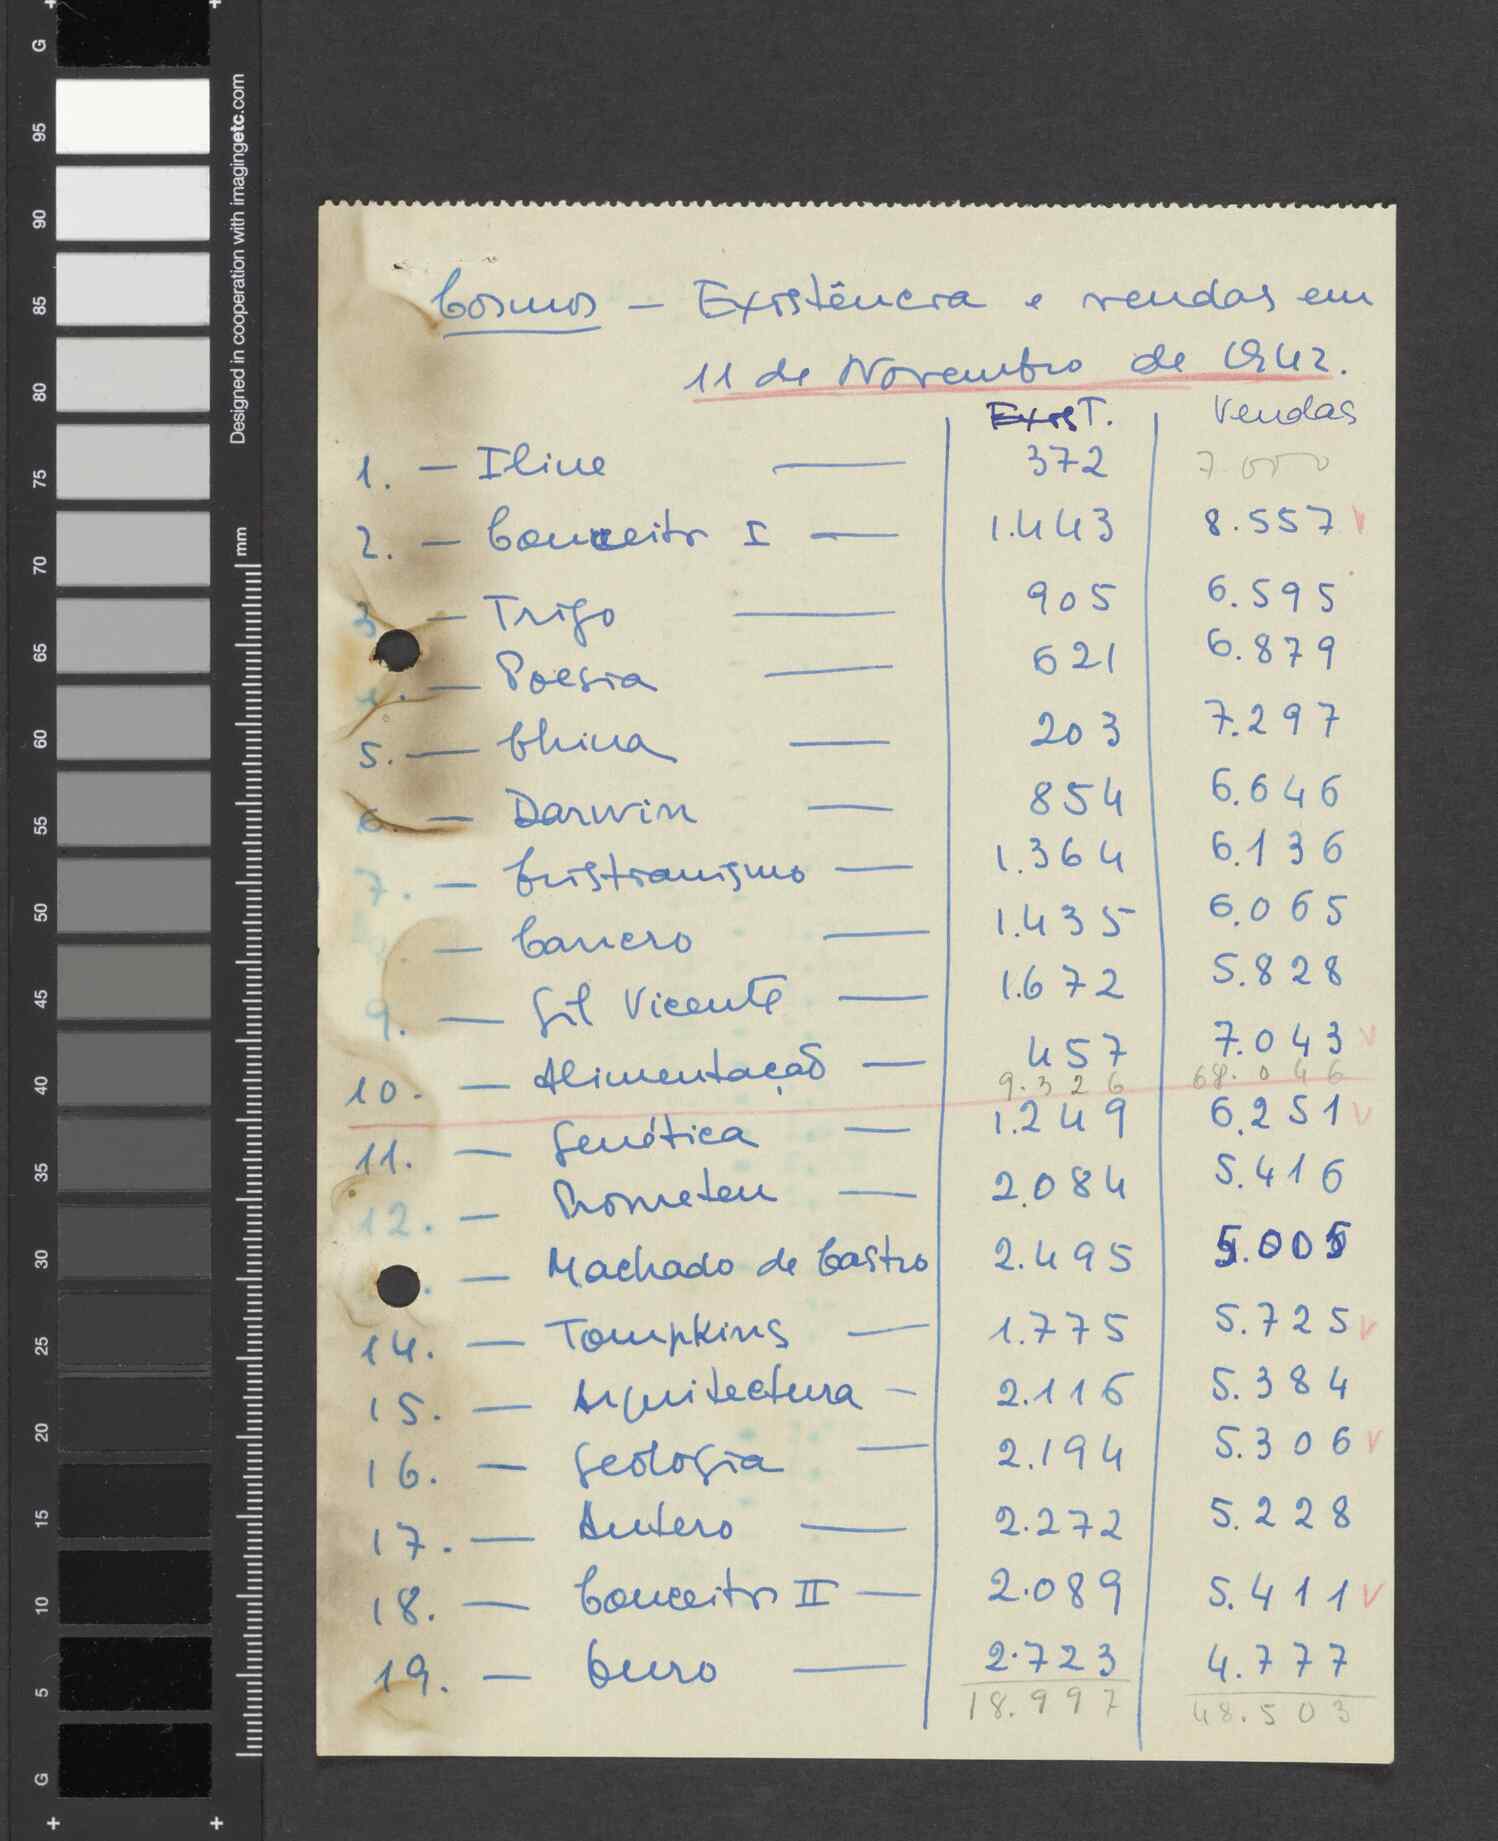 Cosmos — Existência e vendas em
11 de Novembro de 1942.
Exist. Vendas
1. — Iline — 372 7000
2. — Conceitos I — 1.443 8.557 v
3 — Trigo — 905 6.595
4. — Poesia — 621 6.879
5. — China — 203 7.297
6. — Darwin — 854 6.646
7. — Cristianismo — 1.364 6.136
. — Cancro — 1.435 6.065
9. — Gil Vicente — 1.672 5.828
10. — Alimentação — 457 7.043 v
9.326 68.046
11. — Genética — 1.249 6.251 v
12. — Prometeu — 2.084 5.416
. — Machado de Castro 2.495 5.005
14. — Tompkins — 1.775 5.725 v
15. — Arquitectura — 2.116 5.384
16. — Geologia — 2.194 5.306 v
17. — Antero — 2.272 5.228
18. — Conceitos II — 2.089 5.411 v
19. — Euro — 2.723 4.777
18.997 48.503
G 95 90 85 80 75 70 65 60 55 50 45 40 35 30 25 20 15 10 5 G
Designed in cooperation with imagingetc.com
mm